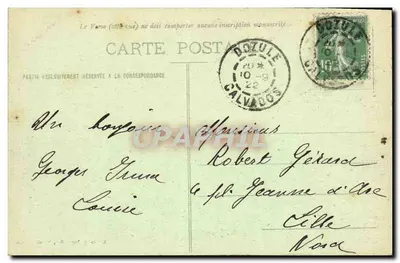 Le Verso (côté vue) ne doit comporter aucune inscription manuscrite
CARTE POSTALE
PARTIE EXCLUSIVEMENT RÉSERVÉE A LA CORRESPONDANCE
DOZULE
20 *
10 - 9
22
CALVADOS
DOZULE
CALVADOS
10
Un bonjour
Georges
Louise
Monsieur
Robert Gérard
Jeanne d'Arc
Lille
Nord
PICARRETOI